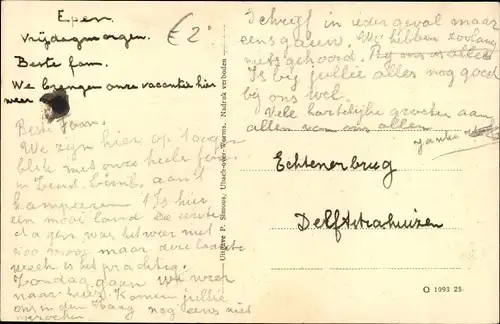 Epen
vrijdagmorgen.
Beste fam.
We brengen onze vacantie hier
weer
€2
Beste fam.
We zijn hier op 't oogen
blik met onze heele fam
in Zuid-Limb. aan 't
kampeeren. 't Is hier
een mooi land. De eerste
dagen was het weer niet
zoo mooi maar deze laatste
week is het prachtig.
Zondag gaan we weer
naar huis. Komen jullie
ons in den Haag nog eens niet
Uitgave P. Simons, Ubach-over-Worms. Nadruk verboden
Schrijf in ieder geval maar
eens gauw. We hebben zoolang
niets gehoord.
Is bij jullie alles nog goed
bij ons wel.
Vele hartelijke groeten aan
allen van ons allen
Echtenerbrug
Delfstrahuizen
O 1993 25